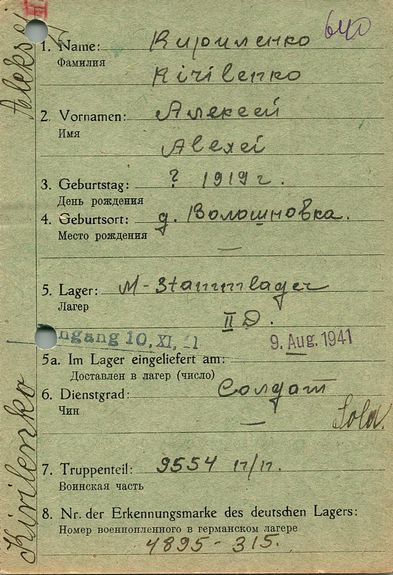 640
1. Name: Кириленко
Фамилия
Kirilenko
2. Vornamen: Алексей
Имя
Alexei
3. Geburtstag: ? 1919 г.
День рождения
4. Geburtsort: д. Волошновка.
Место рождения
—
5. Lager: M-Stammlager
Лагер
II D.
ngang 10, XI, 41
9. Aug. 1941
5a. Im Lager eingeliefert am:
Доставлен в лагер (число)
6. Dienstgrad: Солдат
Чин
—
Sold.
7. Truppenteil: 9554 п/п.
Воинская часть
8. Nr. der Erkennungsmarke des deutschen Lagers:
Номер военнопленного в германском лагере
4895-315.
Kirilenko
Aleksej